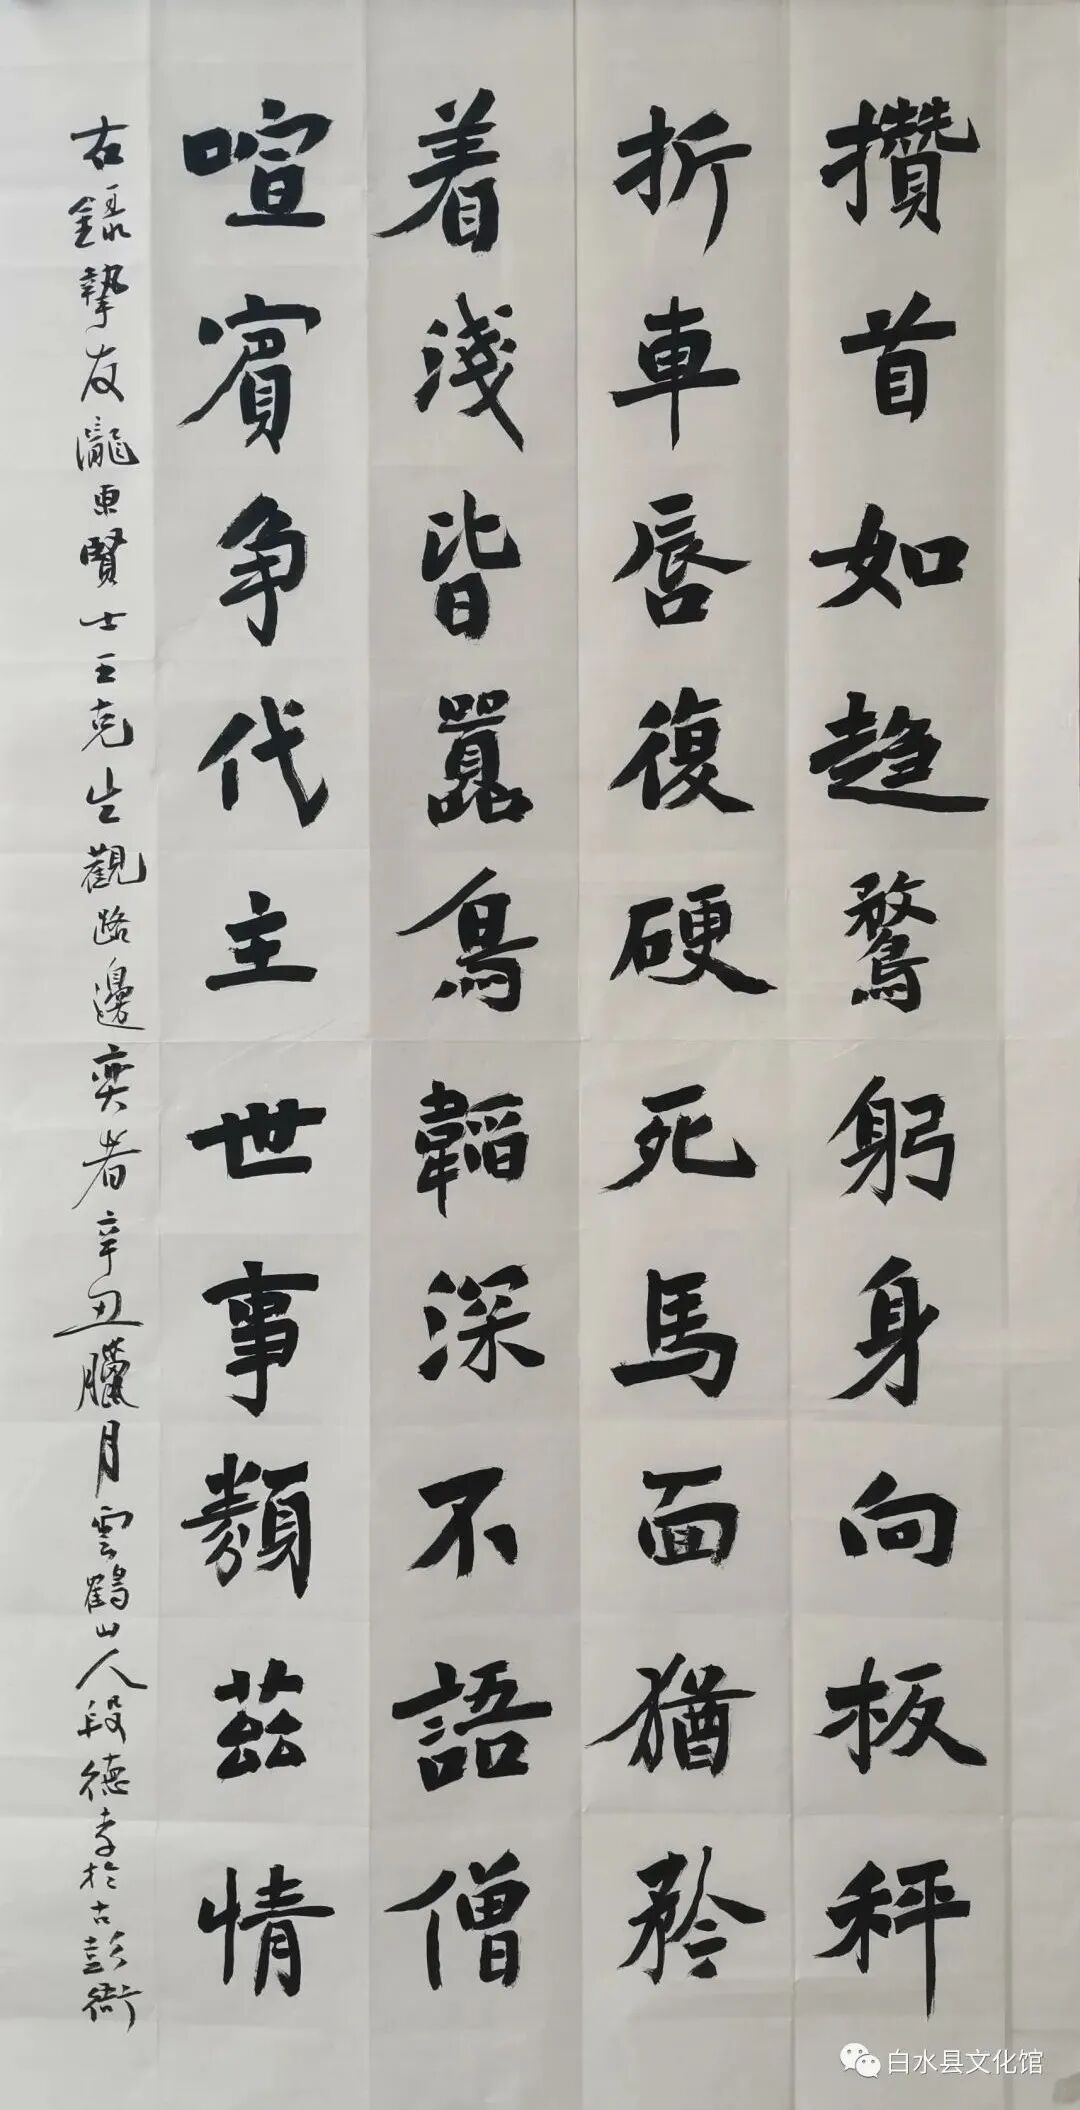 攢首如趋鶩躬身向板秤
折車唇復硬死馬面猶矜
着淺皆囂鳥韜深不語僧
喧賓争代主世事類茲情
右録摯友瀧東賢士王克生觀路邊奕者辛丑臘月雲鶴山人段德孝於古彭衙
白水县文化馆